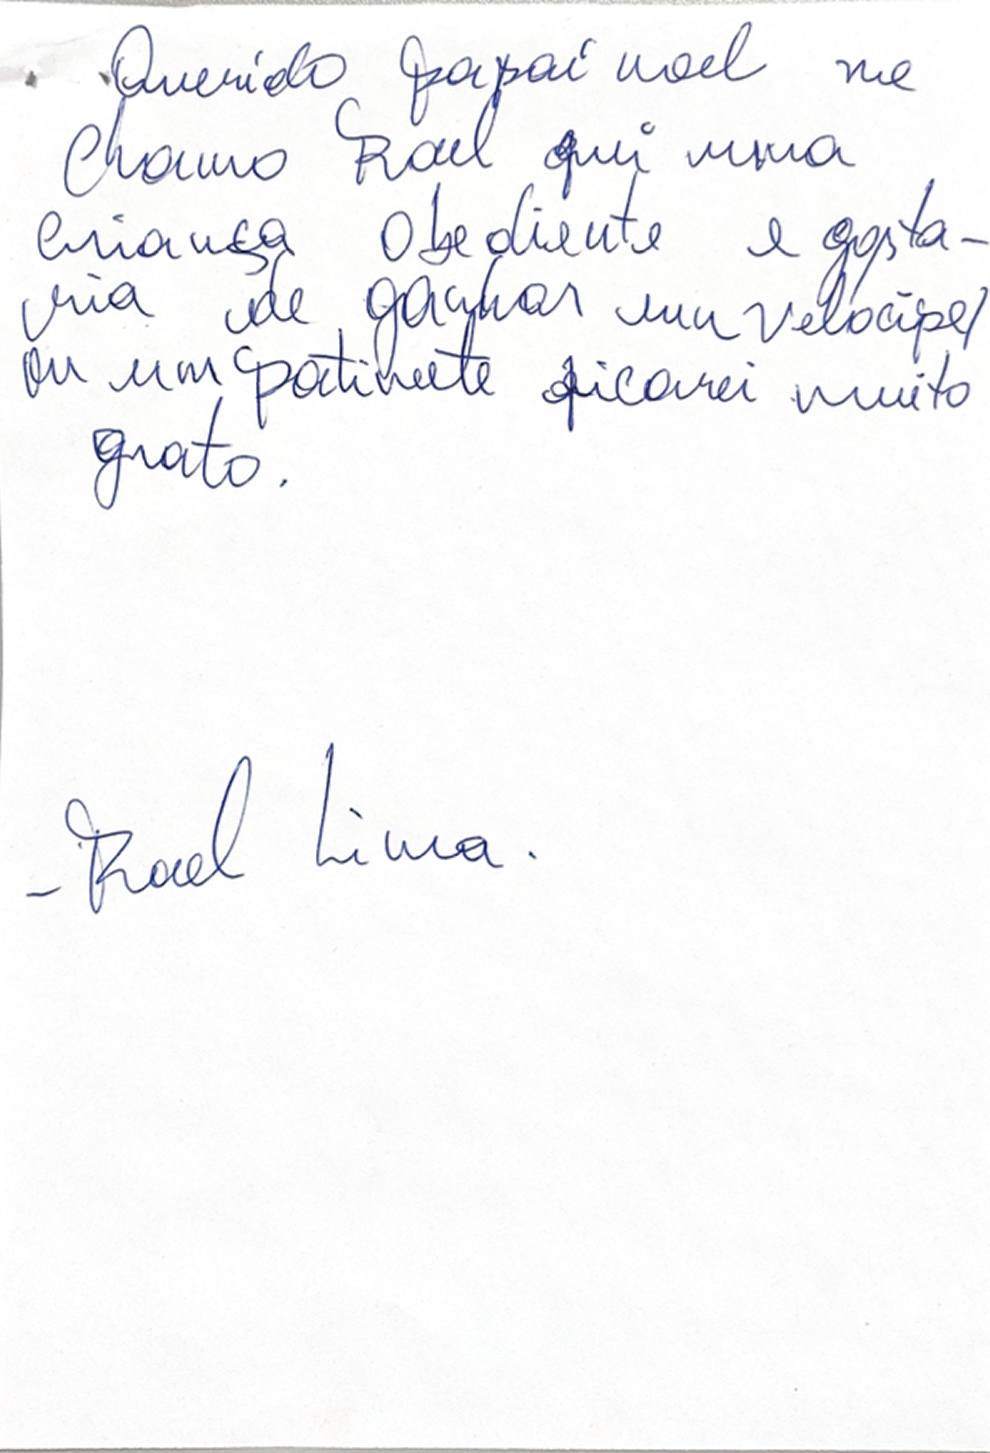 Querido papai noel me
Chamo Rael fui uma
criança Obediente e gosta-
ria de ganhar um velocípe/
ou um patinete ficarei muito
grato.
- Rael Lima.